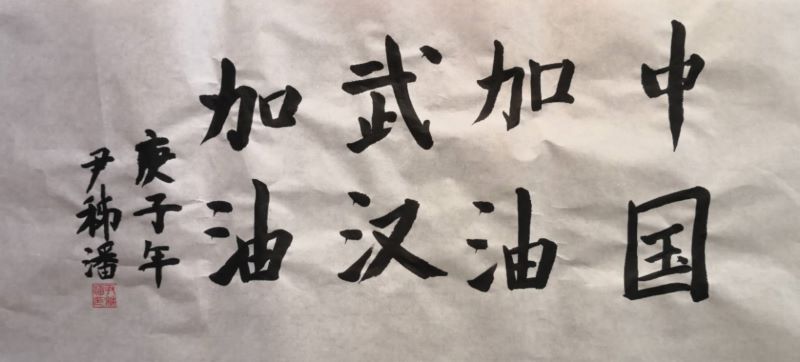 中国
加油
武汉
加油
庚子年
尹秭潘